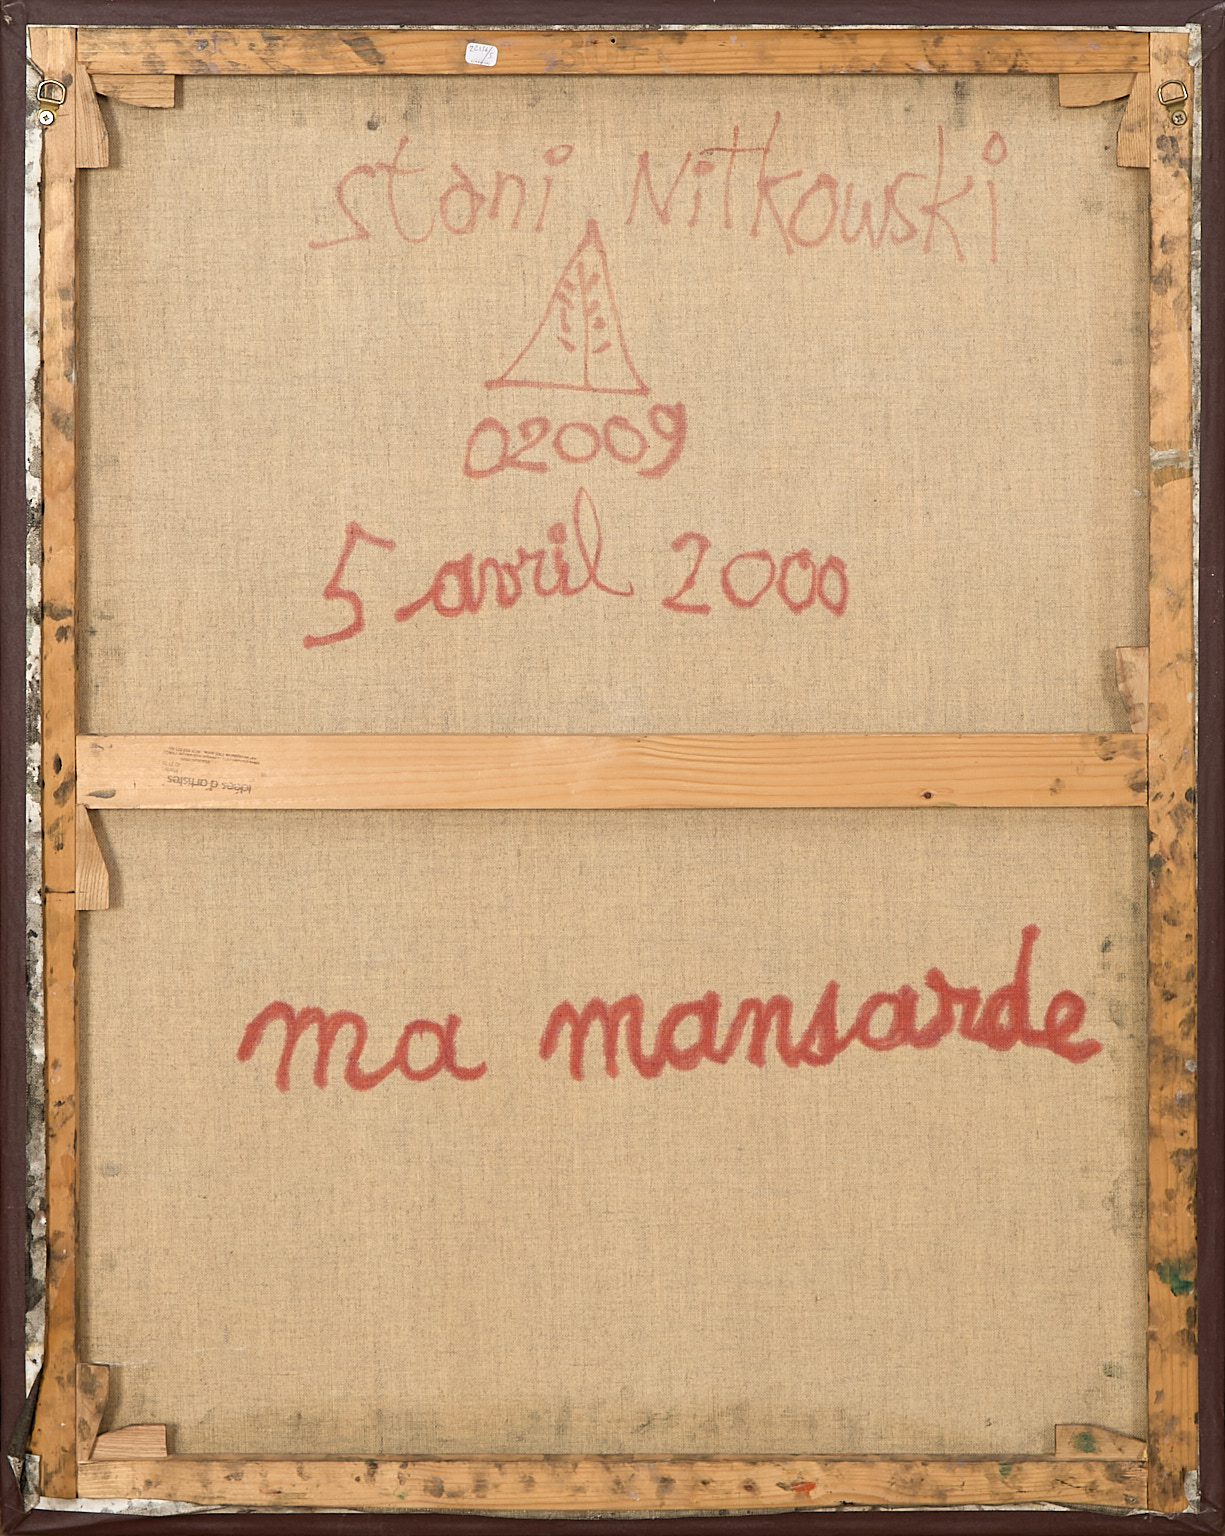 stani Nitkowski
02009
5 avril 2000
idées d'artistes
ma mansarde